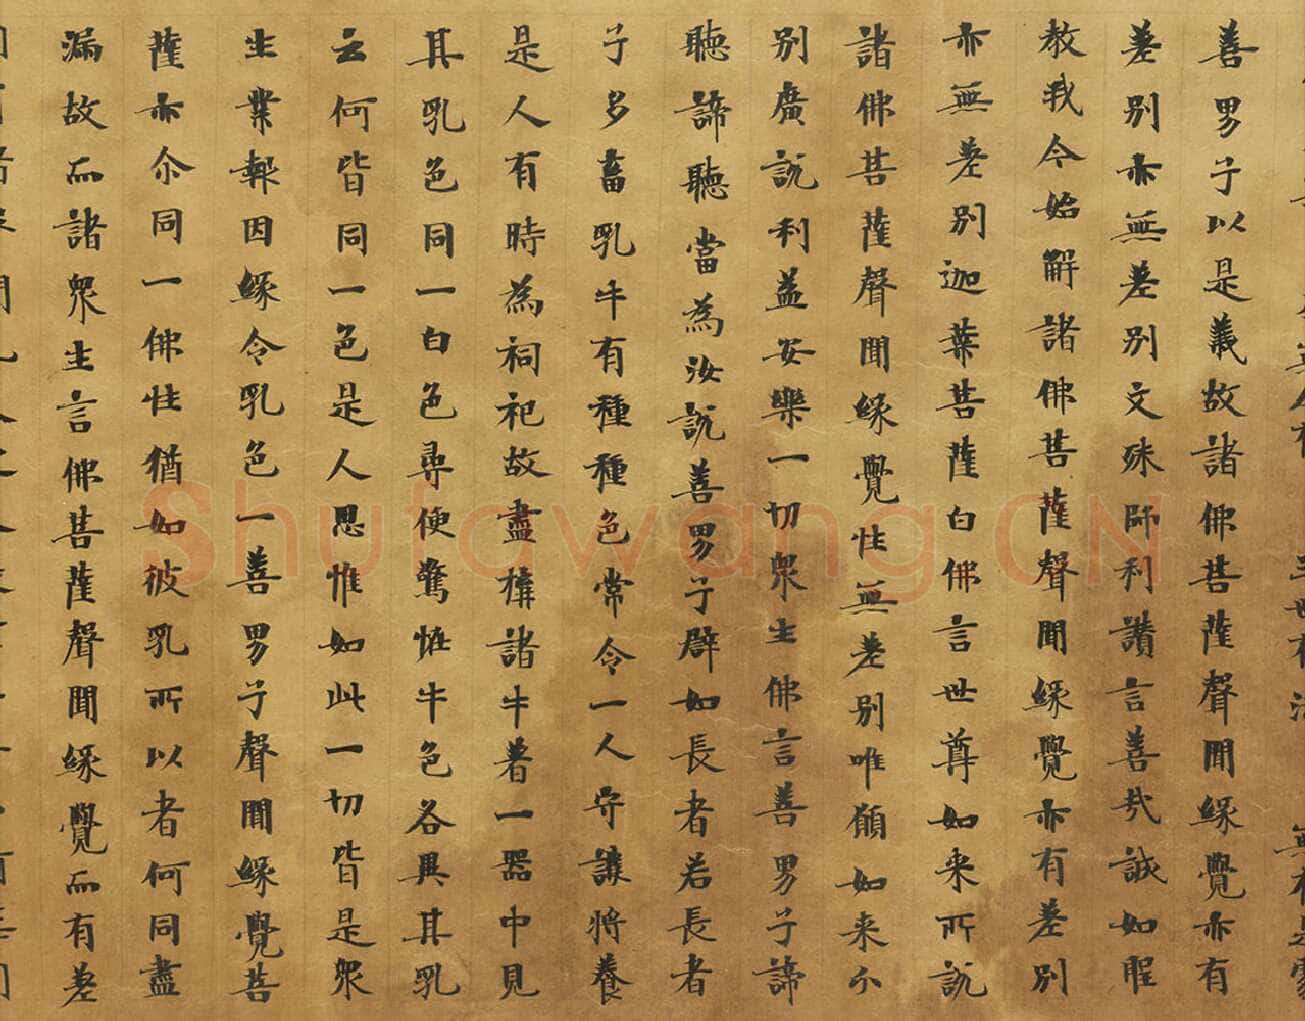 善男子以是義故諸佛菩薩聲聞緣覺亦有
差別亦無差別文殊師利讚言善哉誠如聖
教我今始解諸佛菩薩聲聞緣覺亦有差別
亦無差別迦葉菩薩白佛言世尊如来所說
諸佛菩薩聲聞緣覺性無差別唯願如来分
別廣說利益安樂一切眾生佛言善男子諦
聽諦聽當為汝說善男子辟如長者若長者
子多畜乳牛有種種色常令一人守護將養
是人有時為祠祀故盡搆諸牛著一器中見
其乳色同一白色尋便驚恠牛色各異其乳
云何皆同一色是人思惟如此一切皆是眾
生業報因緣令乳色一善男子聲聞緣覺菩
薩亦尒同一佛性猶如彼乳所以者何同盡
漏故而諸眾生言佛菩薩聲聞緣覺而有差
Shufawang.CN